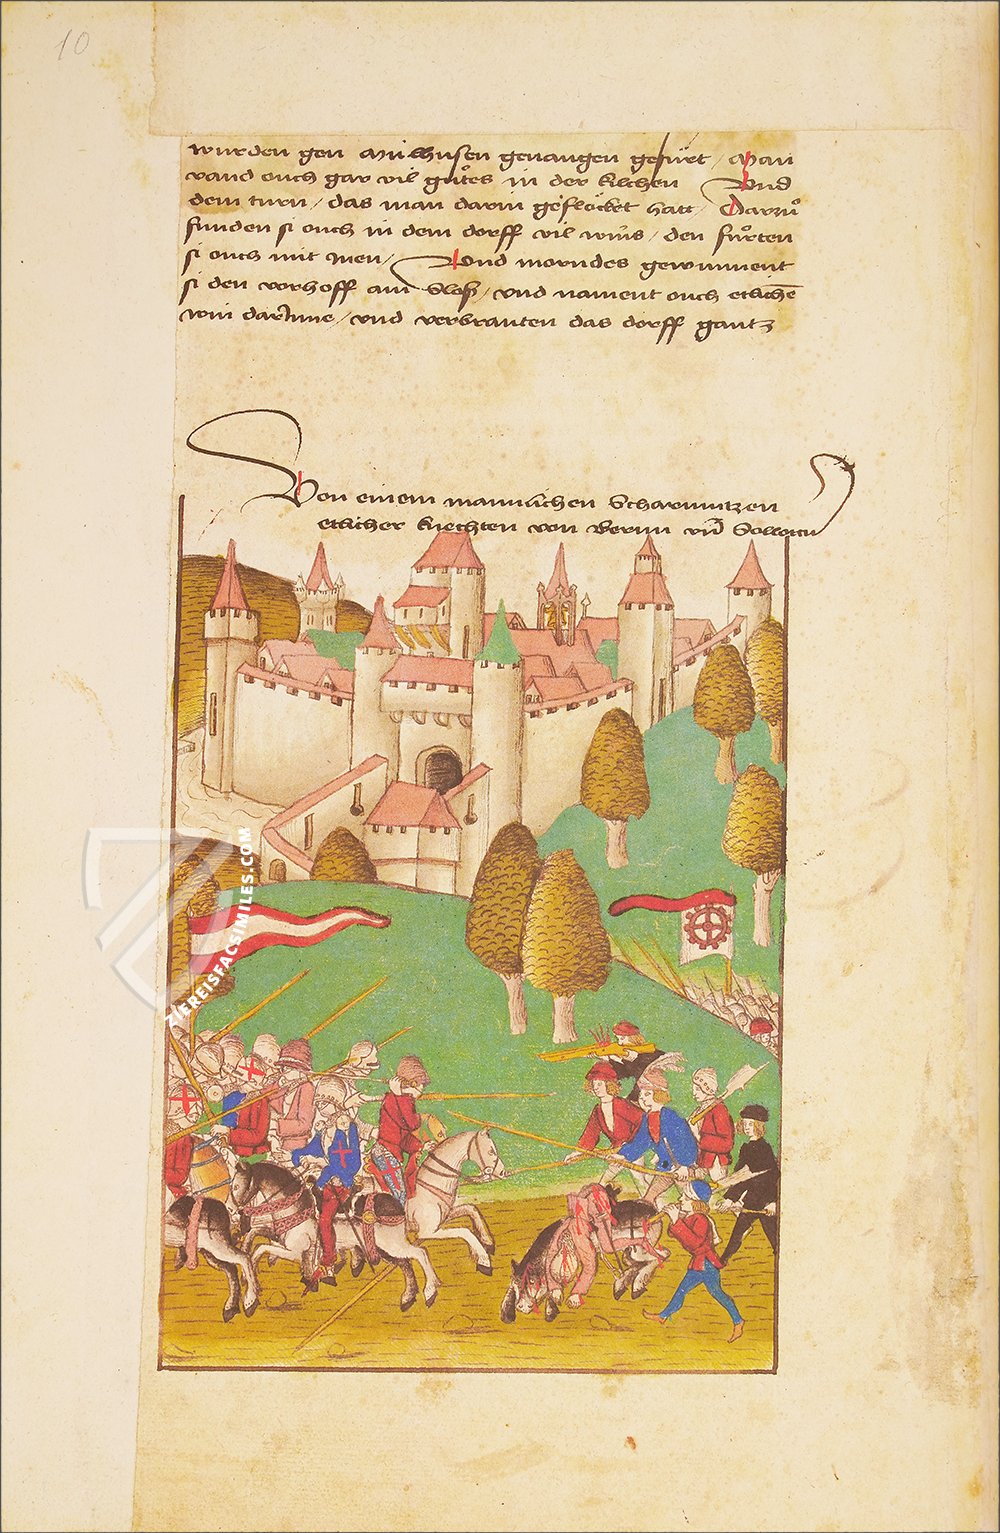 10
wurden gen Mülhusen geuangen gefürt / Man
vand ouch gar vil gůtes in der kilchen Vnd
dem turn / das man darin geflöcket hatt / Darzů
funden si ouch in dem dorff vil wins / den fůrten
si ouch mit Inen / Vnd morndes gewunnent
si den vorhoff am Sloß / vnd nament ouch etlichē
win darInne / vnd verbranten das dorff gantz
Von einem manlichen Scharmutzen
etlicher knechten von Bernn vn̄ Sollotur
ZIEREISFACSIMILES.COM